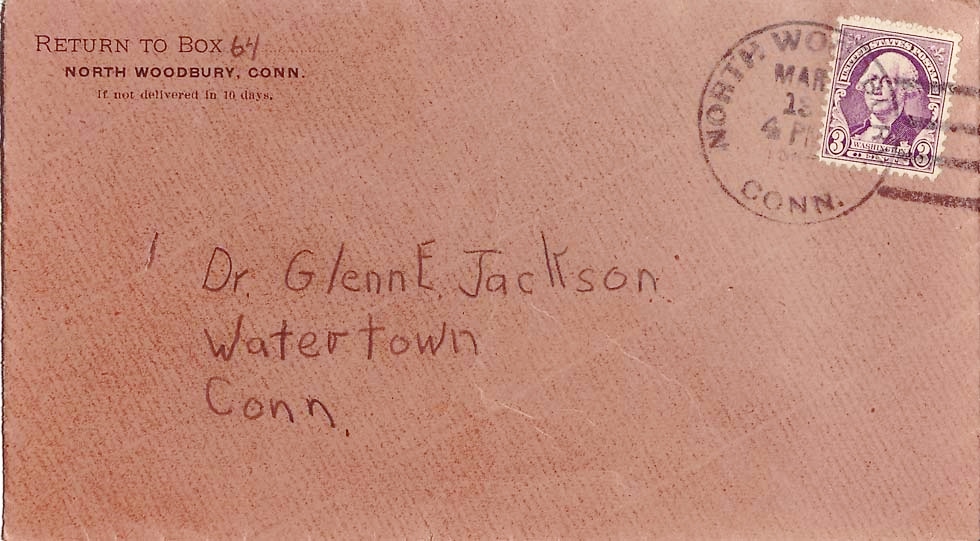 RETURN TO BOX 64
NORTH WOODBURY, CONN.
If not delivered in 10 days.
NORTH WOODBURY
MAR
4 PM
CONN.
UNITED STATES POSTAGE
3 WASHINGTON 3
Dr. Glenn E. Jackson
Watertown
Conn.